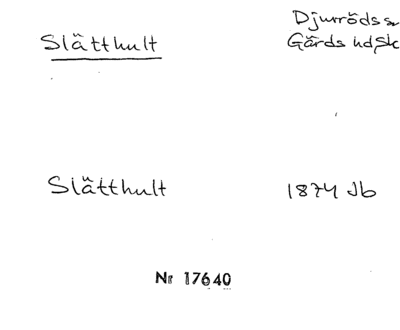 Slätthult
Djurröds sn
Gärds hd, Sk
Slätthult
1874 Jb
Nr 17640